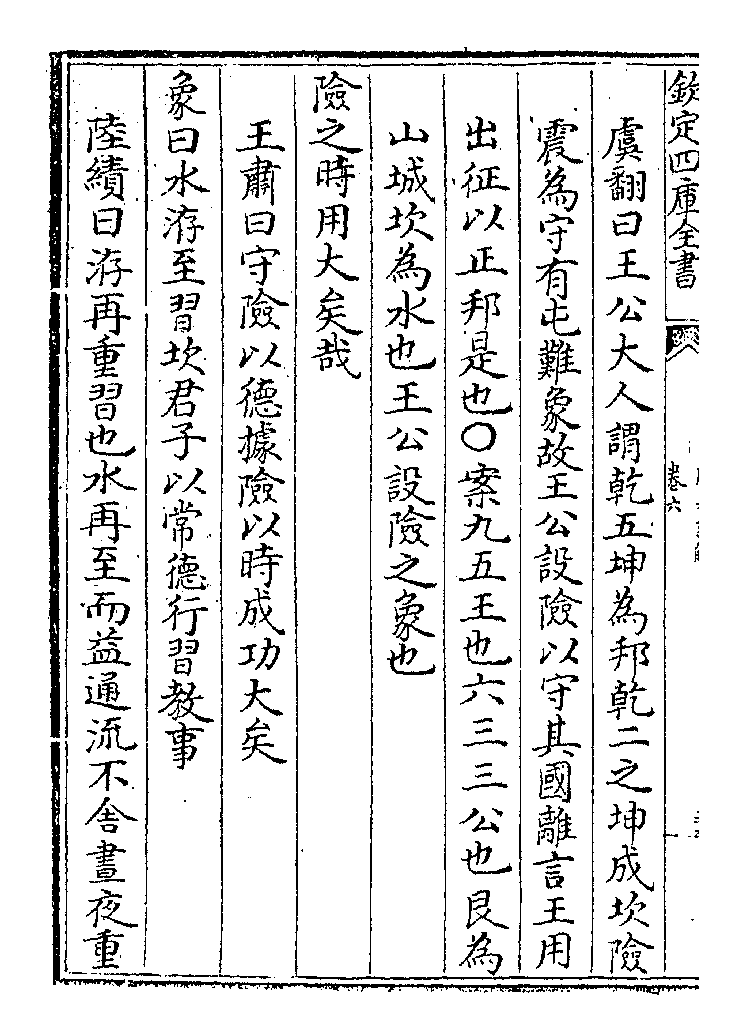 欽定四庫全書
卷六
虞翻曰王公大人謂乾五坤為邦乾二之坤成坎險
震為守有屯難象故王公設險以守其國離言王用
出征以正邦是也〇案九五王也六三三公也艮為
山城坎為水也王公設險之象也
險之時用大矣哉
王肅曰守險以德據險以時成功大矣
象曰水洊至習坎君子以常德行習教事
陸績曰洊再重習也水再至而益通流不舍晝夜重